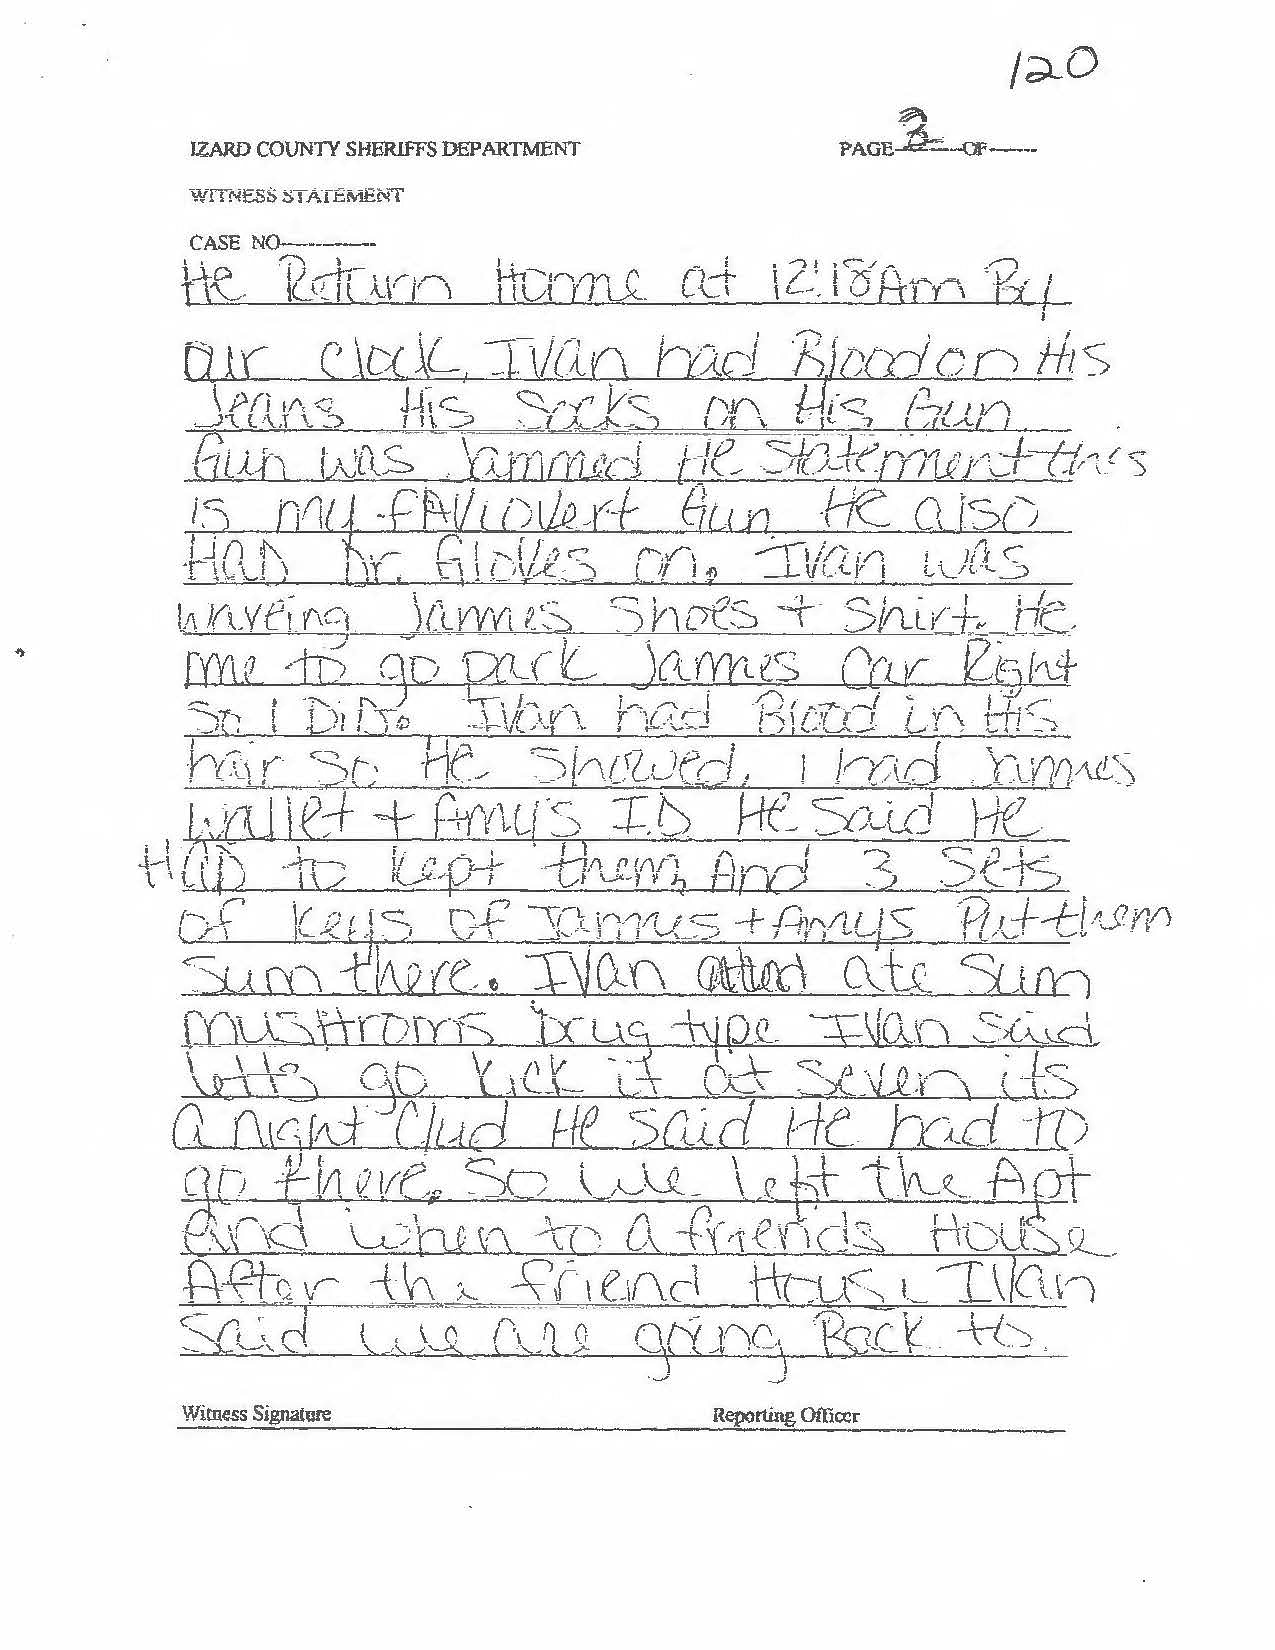 120
IZARD COUNTY SHERIFFS DEPARTMENT PAGE OF
WITNESS STATEMENT
CASE NO
He Return Home at 12:18Am By
our clock, Ivan had Blood on His
Jeans His Socks on His Gun
Gun was Jammed He Statement this
is my fAviovert Gun He also
HAD Dr. Gloves on. Ivan was
wareing James Shoes + Shirt. He
me to go park James Car Right
So I DiD. Ivan had Blood in His
hair So He Showed, I had James
Wallet + Amy's I.D He Said He
HAD to kept them, And 3 Sets
of keys of James + Amys Put them
Sum there. Ivan ate Sum
mushroms Drug type Ivan Said
letts go kick it at Seven its
a night Clud He Said He had to
go there. So we left the Apt
and when to a friends House
After the friend House Ivan
Said we are going Back to
Witness Signature Reporting Officer